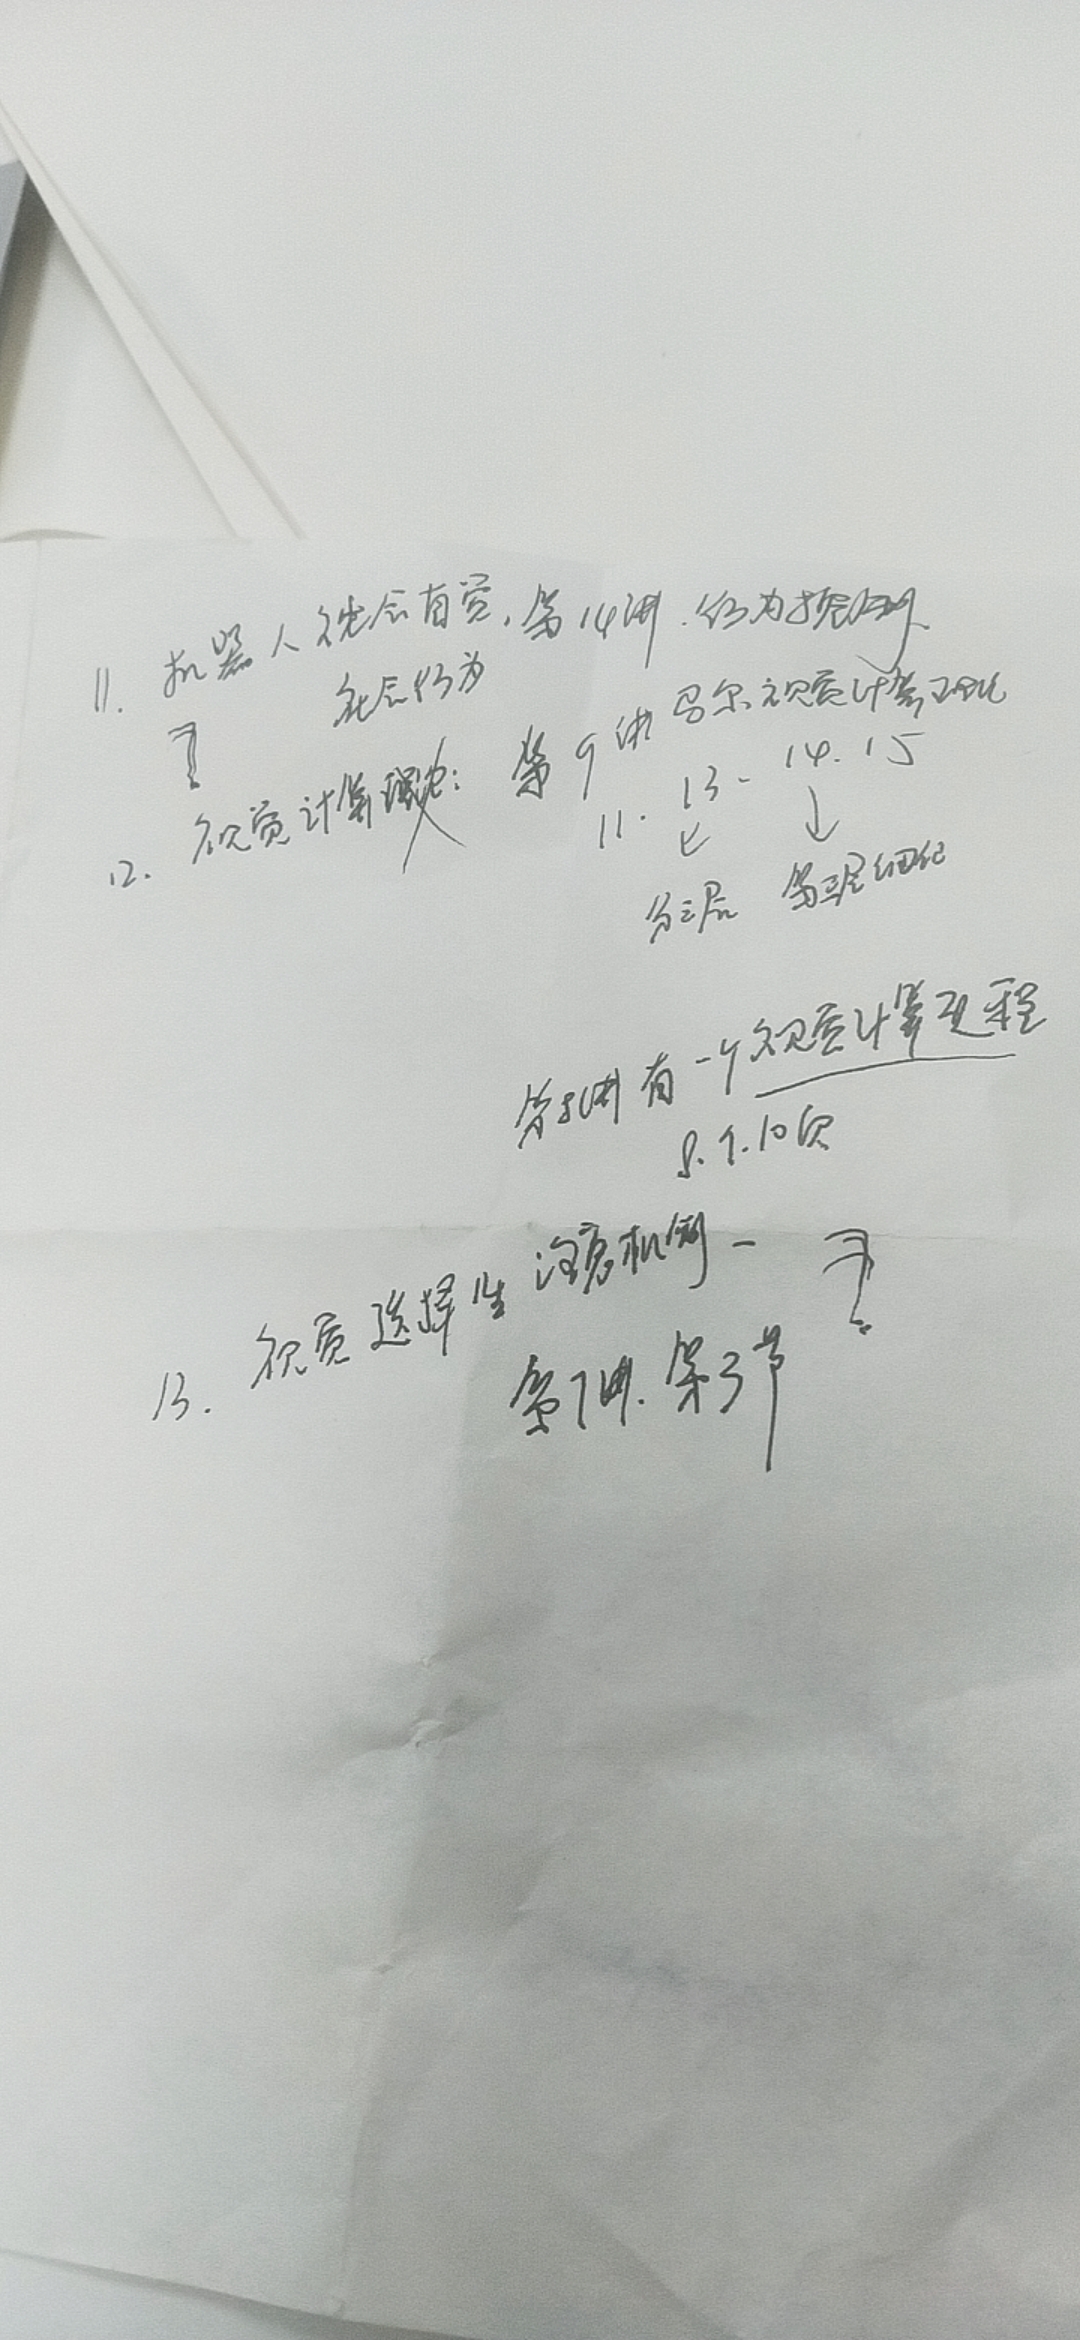 11. 机器人社会自觉. 第14讲. 行为控制
?
社会行为
12. 视觉计算理论: 第9讲 马尔视觉计算理论
11. 13- 14. 15
↙ ↓
分三层 第三层细化
第 讲有一个视觉计算过程
8. 9. 10页
13. 视觉选择性注意机制 - ?
第7讲. 第3节